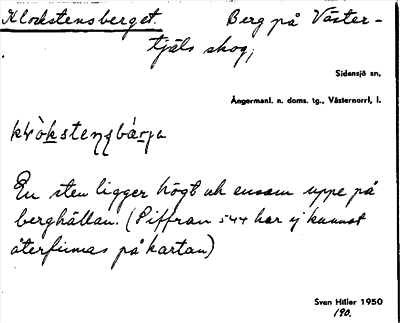 Klockstensberget. Berg på Väster-
tjäls skog;
Sidensjö sn,
Ångermanl. n. doms. tg., Västernorrl. l.
En sten ligger högt och ensam uppe på
berghällan. (Siffran 544 har ej kunnat
återfinnas på kartan)
Sven Hiller 1950
190.